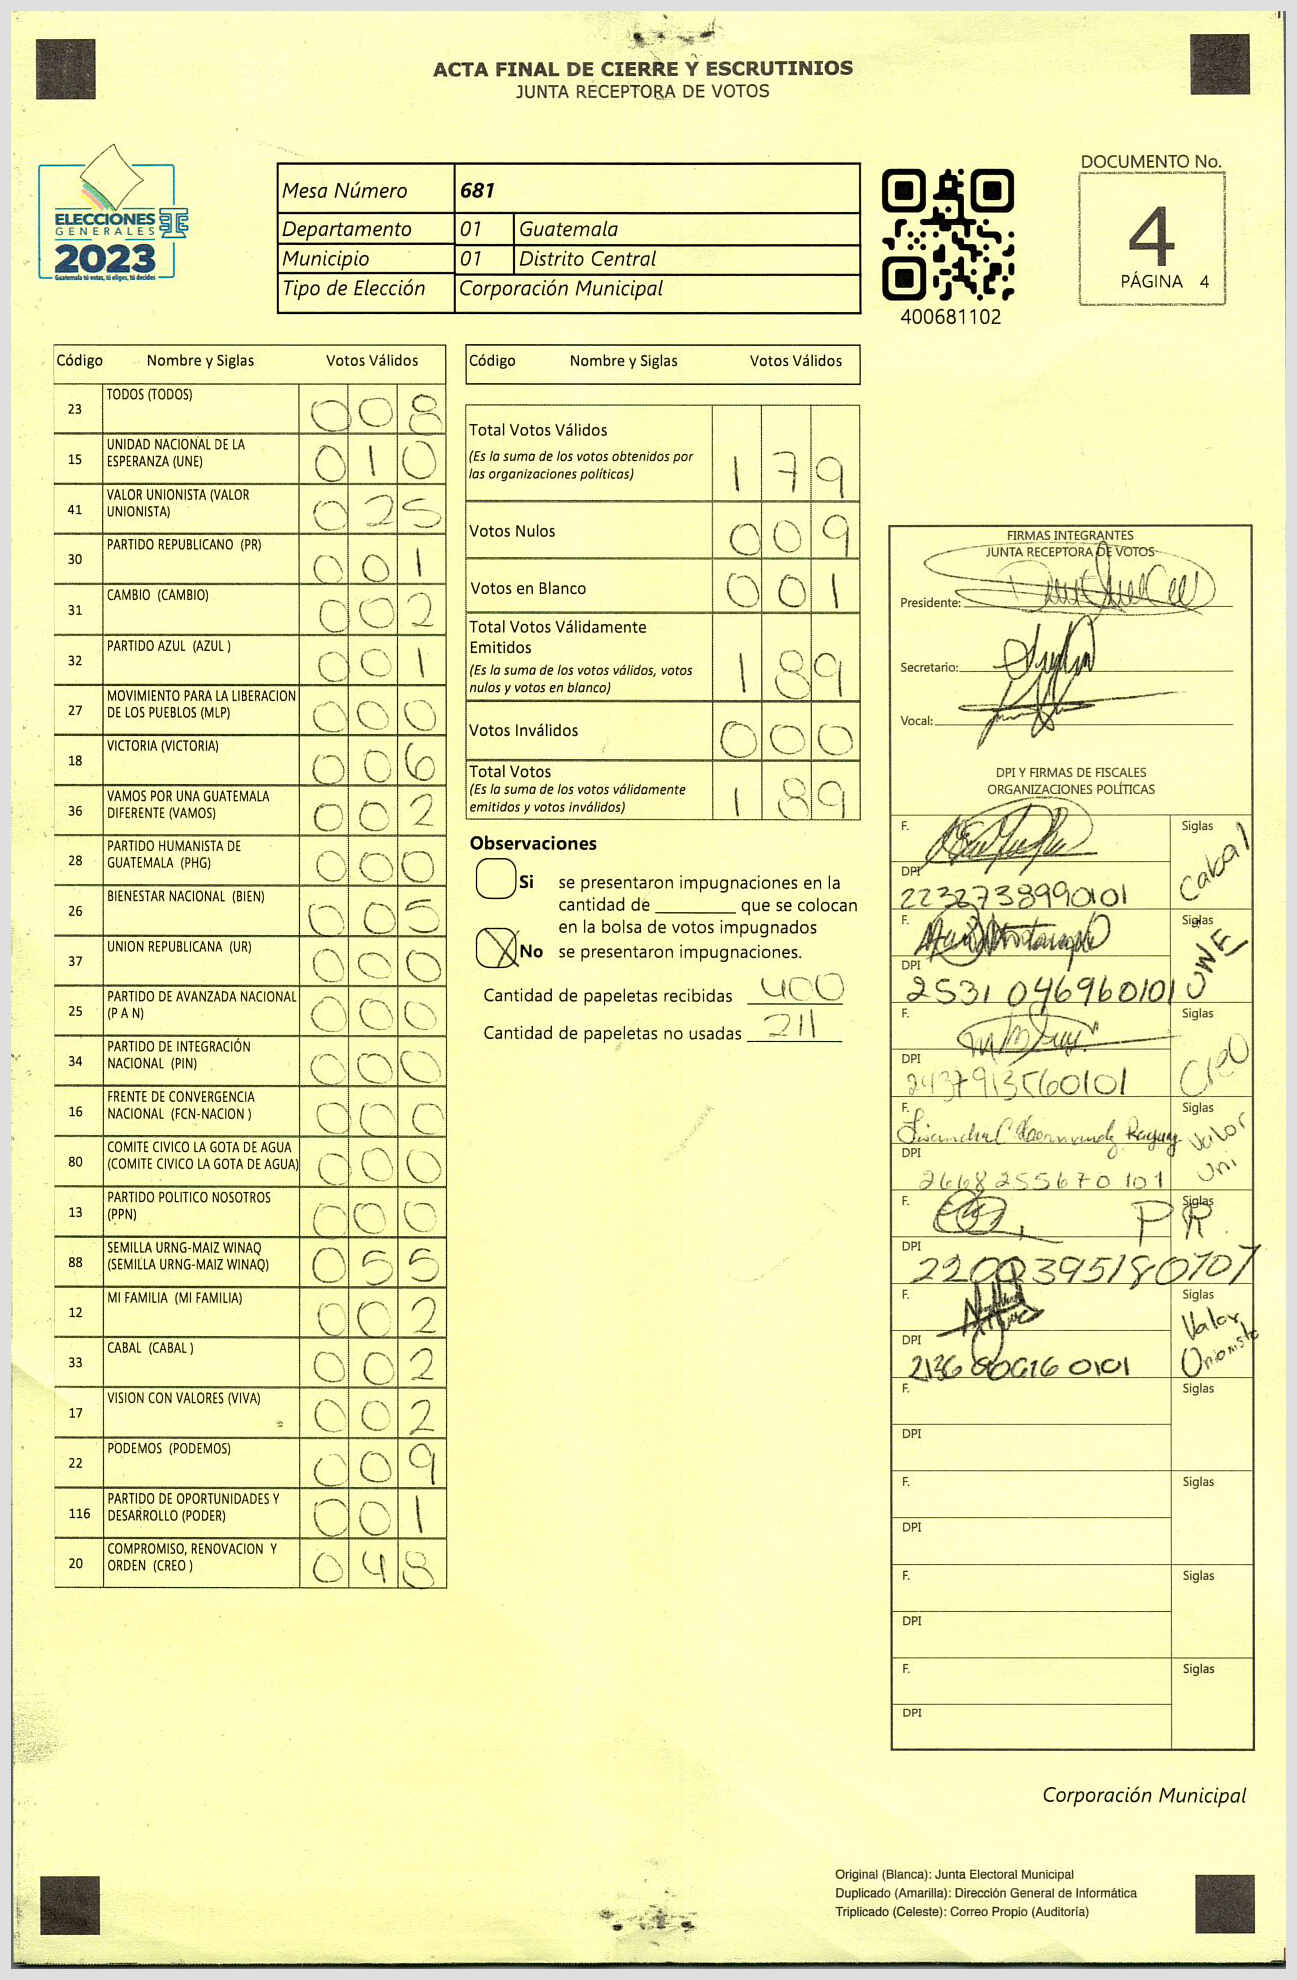 ACTA FINAL DE CIERRE Y ESCRUTINIOS
JUNTA RECEPTORA DE VOTOS
ELECCIONES
GENERALES
2023
Guatemala tú votas, tú eliges, tú decides
Mesa Número 681
Departamento 01 Guatemala
Municipio 01 Distrito Central
Tipo de Elección Corporación Municipal
400681102
DOCUMENTO No.
4
PÁGINA 4
Código Nombre y Siglas Votos Válidos
23 TODOS (TODOS) 008
15 UNIDAD NACIONAL DE LA ESPERANZA (UNE) 010
41 VALOR UNIONISTA (VALOR UNIONISTA) 025
30 PARTIDO REPUBLICANO (PR) 001
31 CAMBIO (CAMBIO) 002
32 PARTIDO AZUL (AZUL ) 001
27 MOVIMIENTO PARA LA LIBERACION DE LOS PUEBLOS (MLP) 000
18 VICTORIA (VICTORIA) 006
36 VAMOS POR UNA GUATEMALA DIFERENTE (VAMOS) 002
28 PARTIDO HUMANISTA DE GUATEMALA (PHG) 000
26 BIENESTAR NACIONAL (BIEN) 005
37 UNION REPUBLICANA (UR) 000
25 PARTIDO DE AVANZADA NACIONAL (P A N) 000
34 PARTIDO DE INTEGRACIÓN NACIONAL (PIN) 000
16 FRENTE DE CONVERGENCIA NACIONAL (FCN-NACION ) 000
80 COMITE CIVICO LA GOTA DE AGUA (COMITE CIVICO LA GOTA DE AGUA) 000
13 PARTIDO POLITICO NOSOTROS (PPN) 000
88 SEMILLA URNG-MAIZ WINAQ (SEMILLA URNG-MAIZ WINAQ) 055
12 MI FAMILIA (MI FAMILIA) 002
33 CABAL (CABAL ) 002
17 VISION CON VALORES (VIVA) 002
22 PODEMOS (PODEMOS) 009
116 PARTIDO DE OPORTUNIDADES Y DESARROLLO (PODER) 001
20 COMPROMISO, RENOVACION Y ORDEN (CREO ) 048
Código Nombre y Siglas Votos Válidos
Total Votos Válidos 179
(Es la suma de los votos obtenidos por
las organizaciones políticas)
Votos Nulos 009
Votos en Blanco 001
Total Votos Válidamente
Emitidos 189
(Es la suma de los votos válidos, votos
nulos y votos en blanco)
Votos Inválidos 000
Total Votos 189
(Es la suma de los votos válidamente
emitidos y votos inválidos)
Observaciones
Si se presentaron impugnaciones en la
cantidad de ________ que se colocan
en la bolsa de votos impugnados
X No se presentaron impugnaciones.
Cantidad de papeletas recibidas 400
Cantidad de papeletas no usadas 211
FIRMAS INTEGRANTES
JUNTA RECEPTORA DE VOTOS
Presidente:
Secretario:
Vocal:
DPI Y FIRMAS DE FISCALES
ORGANIZACIONES POLÍTICAS
F. Siglas Cabal
DPI 2232738990101
F. Siglas UNE
DPI 2531 046960101
F. Siglas Creo
DPI 2437913560101
F. Siglas Valor Uni
DPI 2668 255670 101
F. Siglas PR.
DPI 2200395180707
F. Siglas Valor Unionista
DPI
F. Siglas
DPI
F. Siglas
DPI
F. Siglas
DPI
F. Siglas
DPI
Corporación Municipal
Original (Blanca): Junta Electoral Municipal
Duplicado (Amarilla): Dirección General de Informática
Triplicado (Celeste): Correo Propio (Auditoría)